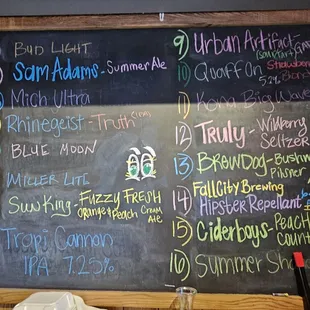 BUD LIGHT
Sam Adams - Summer Ale
Mich Ultra
Rhinegeist - Truth (IPA)
BLUE MOON
MILLER LITE
SUN KING - FUZZY FRESH
Orange & Peach Cream
Ale
Tropi Cannon
IPA 7.25%
9) Urban Artifact -
10 Quaff On
5.2%
11) Kona Big Wave
12) TRULY - Wildberry
Seltzer
13) BREWDOG - Bushw
Pilsner
14) Fall City Brewing
Hipster Repellant
15) Ciderboys - PEACH
COUNT
16) SUMMER Sh